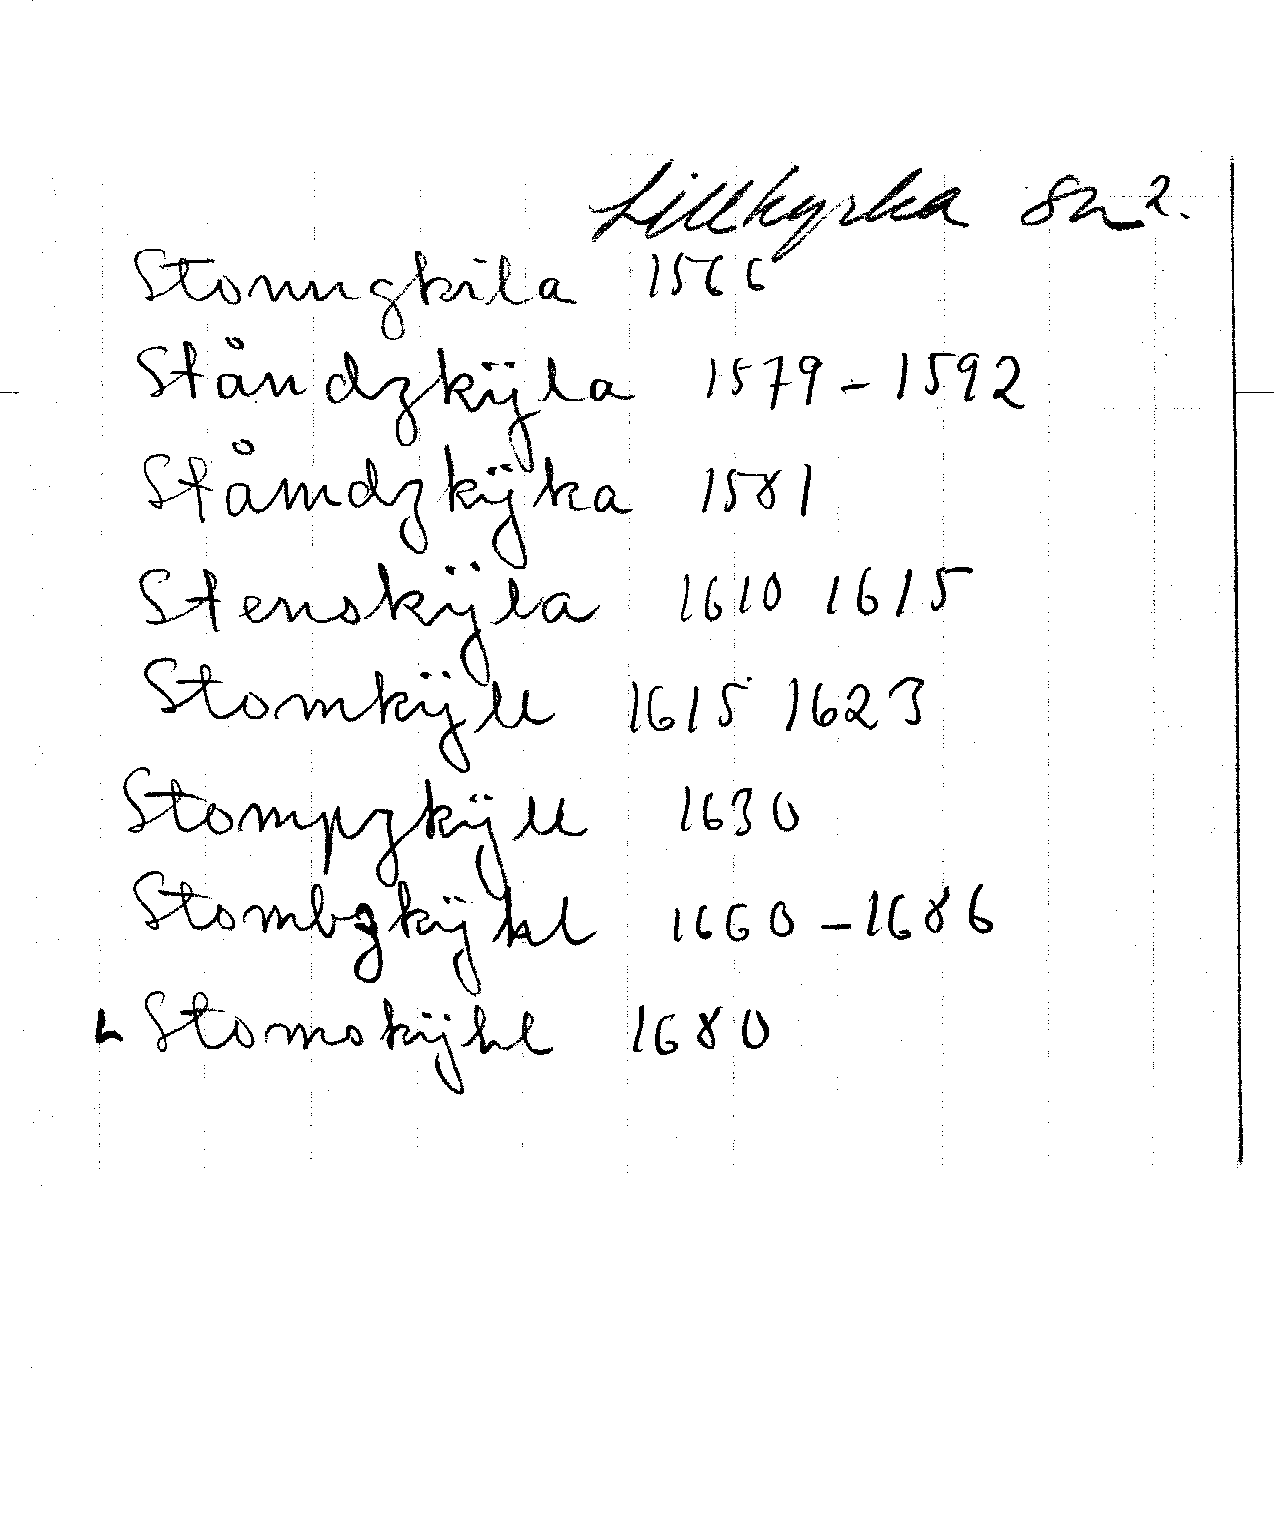 Lillkyrka sn 2.
Stonngkila 1566
Ståndzkÿla 1579-1592
Ståmdzkÿka 1581
Stenskÿla 1610 1615
Stomkÿll 1615 1623
Stompzkÿll 1630
Stombzkÿhl 1660-1686
Stomskÿhl 1680